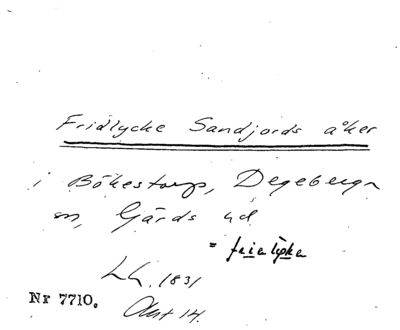 Fridlycke Sandjords åker
i Bökestorp, Degeberga
sn, Gärds hd
= freialyska
LK. 1831
Nr 7710. Akt 14.